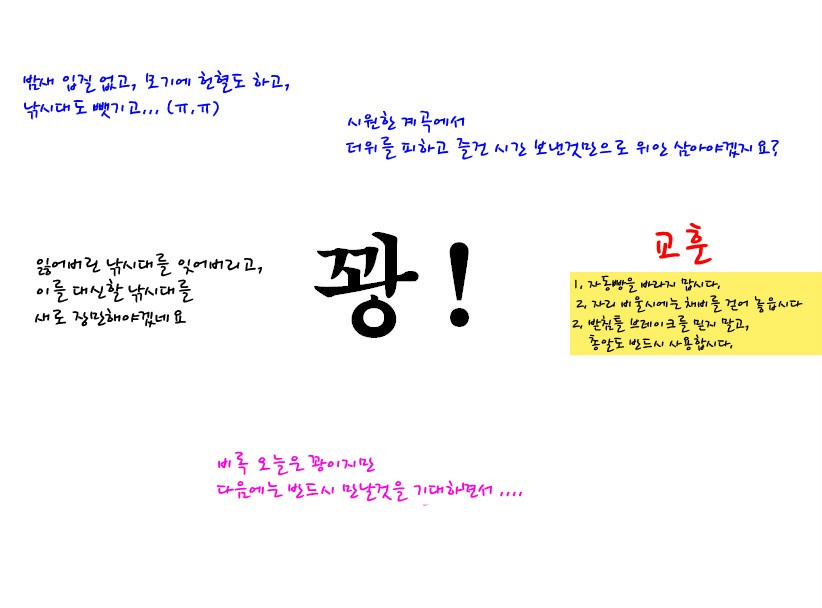 밤새 입질 없고, 모기에 헌혈도 하고,
낚시대도 뺏기고... (ㅠ.ㅠ)
시원한 계곡에서
더위를 피하고 즐건 시간 보낸것만으로 위안 삼아야겠지요?
잃어버린 낚시대를 잊어버리고,
이를 대신할 낚시대를
새로 장만해야겠네요
꽝!
교훈
1. 자동빵을 바라지 맙시다.
2. 자리 비울시에는 채비를 걷어 놓읍시다
2. 받침틀 브레이크를 믿지 말고,
총알도 반드시 사용합시다.
비록 오늘은 꽝이지만
다음에는 반드시 만날것을 기대하면서 ....